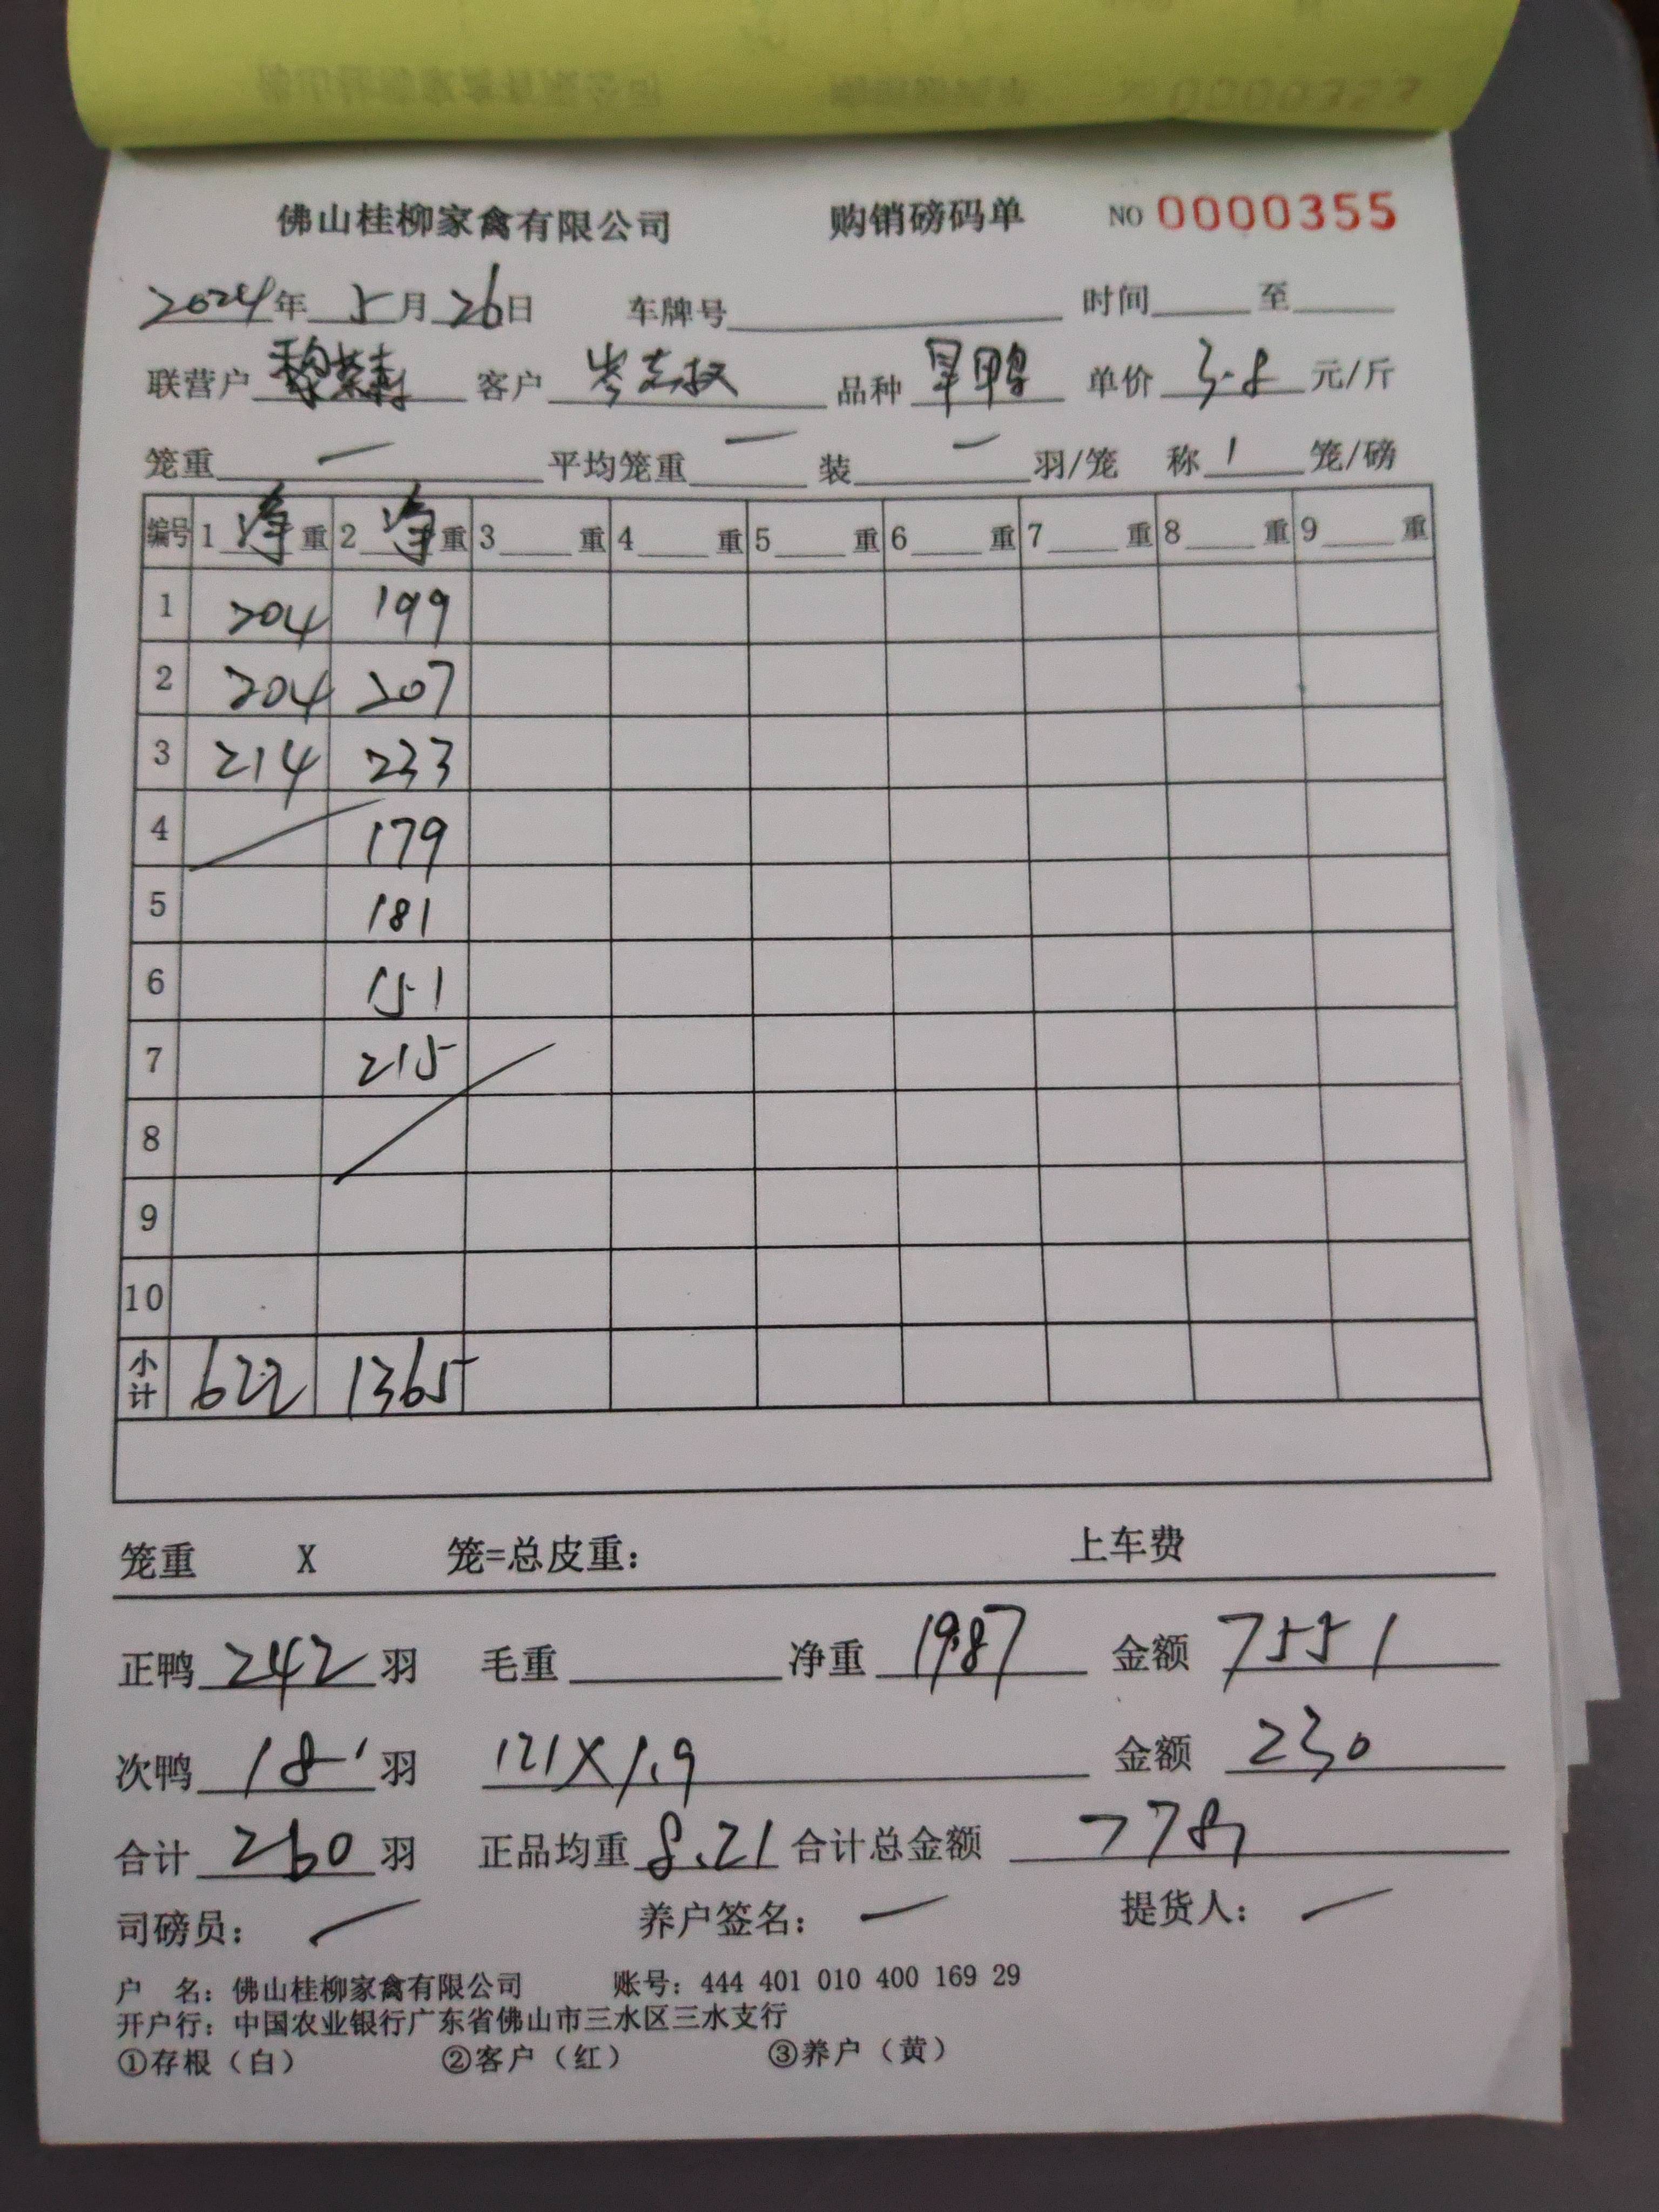 佛山桂柳家禽有限公司 购销磅码单 NO 0000355
2024年 5月 26日 车牌号 时间 至
联营户 客户 岑志权 品种 旱鸭 单价 3.8 元/斤
笼重 一 平均笼重 一 装 一 羽/笼 称 1 笼/磅
编号 1 净 重 2 净 重 3 重 4 重 5 重 6 重 7 重 8 重 9 重
1 204 199
2 204 207
3 214 233
4 179
5 181
6 151
7 215
8
9
10
小计 622 1365
笼重 X 笼=总皮重: 上车费
正鸭 242 羽 毛重 净重 1987 金额 7551
次鸭 18 羽 121X1.9 金额 230
合计 260 羽 正品均重 8.21 合计总金额
司磅员: 一 养户签名: 一 提货人: 一
户 名: 佛山桂柳家禽有限公司 账号: 444 401 010 400 169 29
开户行: 中国农业银行广东省佛山市三水区三水支行
①存根(白) ②客户(红) ③养户(黄)